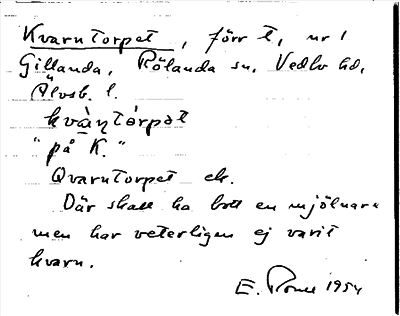 Kvarntorpet, förr t, ur 1
Gillanda, Rölanda sn, Vedbo hd,
Älvsb. l.
kvà̀ṇtórpət
"på K."
Qvarntorpet ek.
Där skall ha bott en mjölnare
men har veterligen ej varit
kvarn.
E. 1954